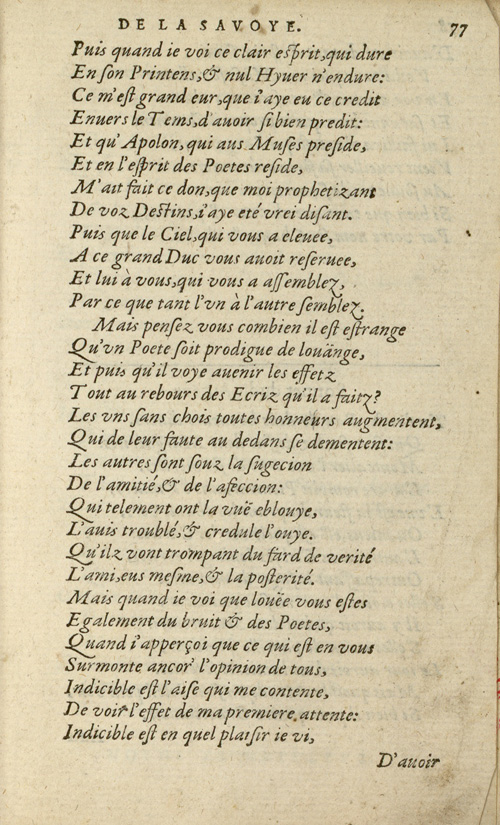 DE LA SAVOYE. 77
Puis quand ie voi ce clair esprit,qui dure
En son Printens,& nul Hyuer n'endure:
Ce m'est grand eur,que i'aye eu ce credit
Enuers le Tems,d'auoir si bien predit:
Et qu'Apolon,qui aus Muses preside,
Et en l'esprit des Poetes reside,
M'ait fait ce don,que moi prophetizant
De voz Destins,i'aye eté vrei disant.
Puis que le Ciel,qui vous a eleuee,
A ce grand Duc vous auoit reseruee,
Et lui à vous,qui vous a assemblez,
Par ce que tant l'vn à l'autre semblez.
Mais pensez vous combien il est estrange
Qu'vn Poete soit prodigue de louänge,
Et puis qu'il voye auenir les effetz
Tout au rebours des Ecriz qu'il a faitz?
Les vns sans chois toutes honneurs augmentent,
Qui de leur faute au dedans se dementent:
Les autres sont souz la sugecion
De l'amitié,& de l'afeccion:
Qui telement ont la vuë eblouye,
L'auis troublé,& credule l'ouye.
Qu'ilz vont trompant du fard de verité
L'ami,eus mesme,& la posterité.
Mais quand ie voi que louëe vous estes
Egalement du bruit & des Poetes,
Quand i'apperçoi que ce qui est en vous
Surmonte ancor' l'opinion de tous,
Indicible est l'aise qui me contente,
De voir l'effet de ma premiere attente:
Indicible est en quel plaisir ie vi,
D'auoir